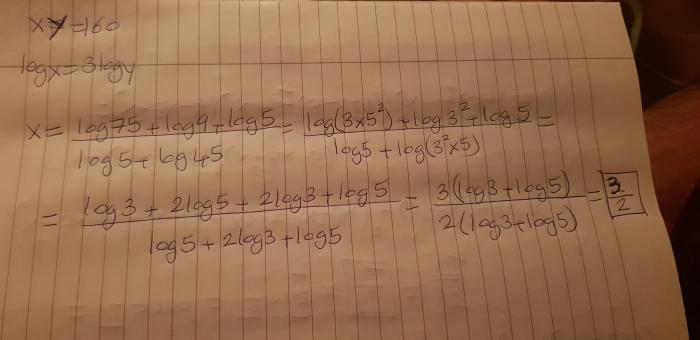 xy=160
logx=3logy
x = (log75+log9+log5)/(log5+log45) = (log(3×5²)+log3²+log5)/(log5+log(3²×5)) =
= (log3+2log5+2log3+log5)/(log5+2log3+log5) = (3(log3+log5))/(2(log3+log5)) = 3/2